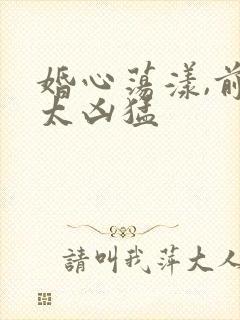 婚心荡漾,前
太凶猛
請叫我萍大人